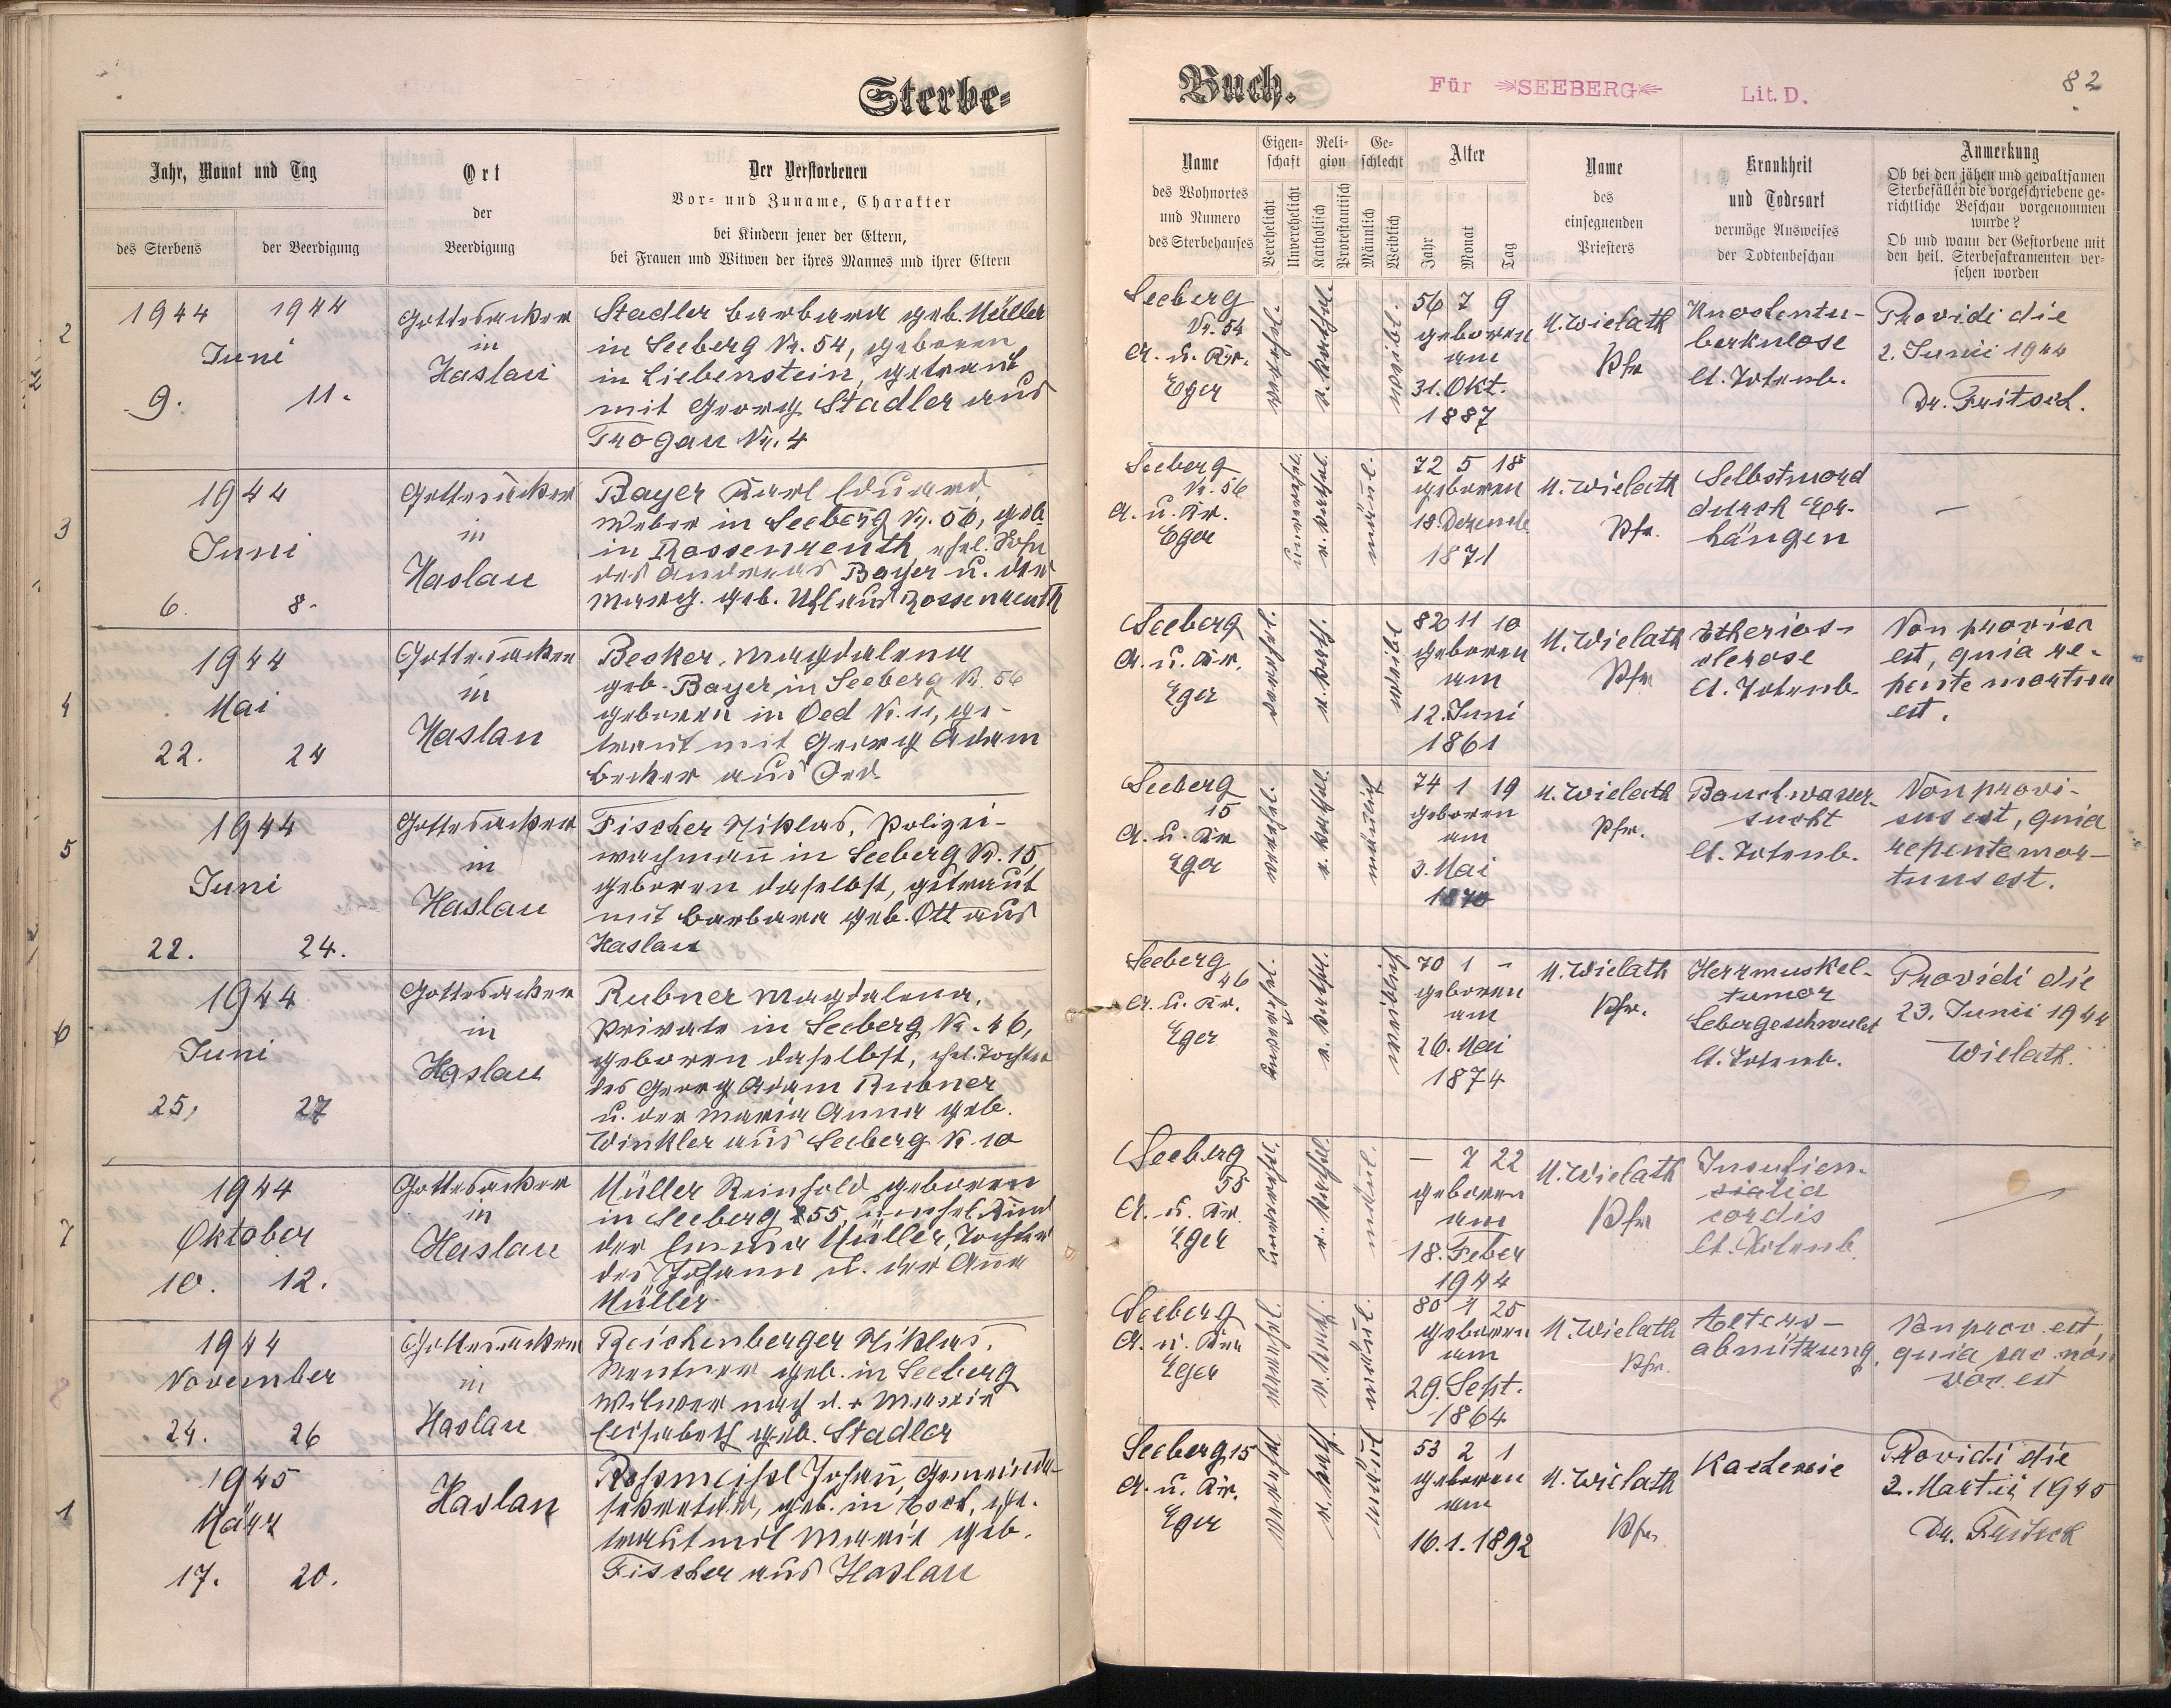 Sterbe-
Jahr, Monat und Tag
des Sterbens
der Beerdigung
Ort
der
Beerdigung
Der Verstorbenen
Vor- und Zuname, Charakter
bei Kindern jener der Eltern,
bei Frauen und Witwen der ihres Mannes und ihrer Eltern
2
1944 1944
Juni
9. 11.
Gottesacker
in
Haslau
Stadler Barbara geb. Müller
in Seeberg Nr. 54, geboren
in Liebenstein, getraut
mit Georg Stadler aus
Trogau Nr. 4
3
1944
Juni
6. 8.
Gottesacker
in
Haslau
Bayer Karl Eduard,
Weber in Seeberg Nr. 56, geb.
in Rossenreuth, ehel. Sohn
des Andreas Bayer u. der
Marg. geb. Uhl aus Rossenreuth
4
1944
Mai
22. 24
Gottesacker
in
Haslau
Becker, Magdalena
geb. Bayer, in Seeberg N. 56
geboren in Oed N. 11, ge-
traut mit Georg Adam
Becker aus Oed
5
1944
Juni
22. 24.
Gottesacker
in
Haslau
Fischer Niklas, Polizei-
wachmann in Seeberg N. 15,
geboren daselbst, getraut
mit Barbara geb. Ott aus
Haslau
6
1944
Juni
25, 27
Gottesacker
in
Haslau
Rubner Magdalena,
Private in Seeberg N. 46,
geboren daselbst, ehel. Tochter
des Georg Adam Rubner
u. der Maria Anna geb.
Winkler aus Seeberg N. 10
7
1944
Oktober
10. 12.
Gottesacker
in
Haslau
Müller Reinhold geboren
in Seeberg 55, unehel. Kind
der Emma Müller, Tochter
des Johann u. der Anna
Müller
8
1944
November
24. 26
Gottesacker
in
Haslau
Reichenberger Niklas,
Rentner geb. in Seeberg
Witwer nach d. + Marie
Elisabeth geb. Stadler
1
1945
März
17. 20.
Haslau
Rossmeisl Johann, Gemeinde-
sekretär, geb. in Asch, ge-
traut mit Marie geb.
Fischer aus Haslau
Buch.
Für SEEBERG
Lit. D.
82
Name
des Wohnortes
und Numero
des Sterbehauses
Eigen-
schaft
Verehelicht
Unverehelicht
Reli-
gion
Katholisch
Protestantisch
Ge-
schlecht
Männlich
Weiblich
Alter
Jahr
Monat
Tag
Name
des
einsegnenden
Priesters
Krankheit
und Todesart
vermöge Ausweises
der Todtenbeschau
Anmerkung
Ob bei den jähen und gewaltsamen
Sterbefällen die vorgeschriebene ge-
richtliche Beschau vorgenommen
wurde?
Ob und wann der Gestorbene mit
den heil. Sterbesakramenten ver-
sehen worden
Seeberg
Nr. 54
A. u. Kr.
Eger
verehel.
r. kathol.
weibl.
56 7 9
geboren
am
31. Okt.
1887
U. Wielath
Pfr.
Knochentu-
berkulose
lt. Totenb.
Providi die
2. Junii 1944
Dr. Fritsch.
Seeberg
Nr. 56
A. u. Kr.
Eger
unverehel.
r. kathol.
männl.
72 5 18
geboren
18. Dezemb.
1871
U. Wielath
Pfr.
Selbstmord
durch Er-
hängen
—
Seeberg
A. u. Kr.
Eger
verehel.
r. kath.
weibl
82 11 10
geboren
am
12. Juni
1861
U. Wielath
Pfr
lt. Totenb.
Non provisa
est, quia re-
pente mortua
est.
Seeberg
15
A. u. Kr
Eger
verehel.
r. kathol.
männlich
74 1 19
geboren
am
3. Mai
1870
U. Wielath
Pfr.
Bauchwasser-
sucht
lt. Totenb.
Non provi-
sus est, quia
repente mor-
tuus est.
Seeberg
46
A. u. Kr.
Eger
unverehel.
r. kathol.
weiblich
70 1 -
geboren
am
26. Mai
1874
U. Wielath
Pfr.
Herzmuskel-
tumor
Lebergeschwulst
lt. Totenb.
Providi die
23. Junii 1944
Wielath.
Seeberg
55
A. u. Kr.
Eger
unverehel.
r. kathol.
männl.
— 7 22
geboren
am
18. Feber
1944
U. Wielath
Pfr
cordis
lt. Totenb.
—
Seeberg
A. u. Kr.
Eger
r. kath.
männl.
80 1 25
geboren
am
29. Sept.
1864
U. Wielath
Pfr.
Alters-
abnützung.
Non prov. est,
quia sac. non
voc. est
Seeberg 15
A. u. Kr.
Eger
verehel
r. kath.
männl
53 2 1
geboren
am
16.1.1892
U. Wielath
Pfr.
Kachexie
Providi die
2. Martii 1945
Dr. Fritsch